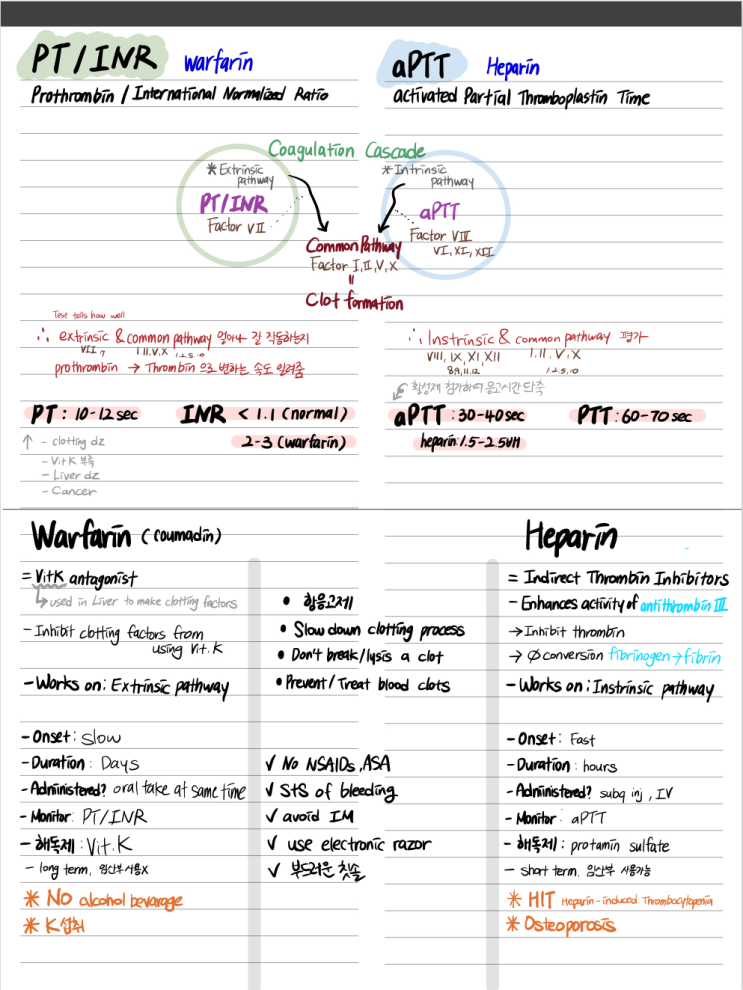 PT/INR warfarin
Prothrombin / International Normalized Ratio
aPTT Heparin
activated Partial Thromboplastin Time
Coagulation Cascade
* Extrinsic
pathway
PT/INR
Factor VII
* Intrinsic
pathway
aPTT
Factor VIII
VI, XI, XII
Common Pathway
Factor I, II, V, X
=
Clot formation
Test tells how well
∴ extrinsic & common pathway 얼마나 잘 작동하는지
VII 7 I II.V.X 1.2.5.10
prothrombin → Thrombin 으로 변하는 속도 알려줌
PT : 10-12 sec INR < 1.1 (normal)
2-3 (warfarin)
↑ - clotting dz
- Vit K 부족
- Liver dz
- Cancer
∴ Instrinsic & common pathway 평가
VIII, IX, XI, XII I. II. V. X
8.9.11.12 1.2.5.10
활성제 첨가하여 응고시간 단축
aPTT : 30-40 sec PTT : 60-70 sec
heparin: 1.5-2.5배
Warfarin (coumadin)
= Vit K antagonist
↳ used in Liver to make clotting factors
- Inhibit clotting factors from
using Vit. K
- Works on: Extrinsic pathway
- Onset: Slow
- Duration: Days
- Administered? oral take at same time
- Monitor: PT/INR
- 해독제: Vit. K
- long term, 임산부 사용 X
* No alcohol bevarage
* K 섭취
• 항응고제
• Slow down clotting process
• Don't break/lysis a clot
• Prevent/Treat blood clots
✓ No NSAIDs, ASA
✓ S+S of bleeding
✓ avoid IM
✓ use electronic razor
✓ 부드러운 칫솔
Heparin
= Indirect Thrombin Inhibitors
- Enhances activity of antithrombin III
→ Inhibit thrombin
→ Ø conversion fibrinogen → fibrin
- Works on: Instrinsic pathway
- Onset: Fast
- Duration: hours
- Administered? subq inj, IV
- Monitor: aPTT
- 해독제: protamin sulfate
- short term, 임산부 사용가능
* HIT Heparin-induced Thrombocytopenia
* Osteoporosis